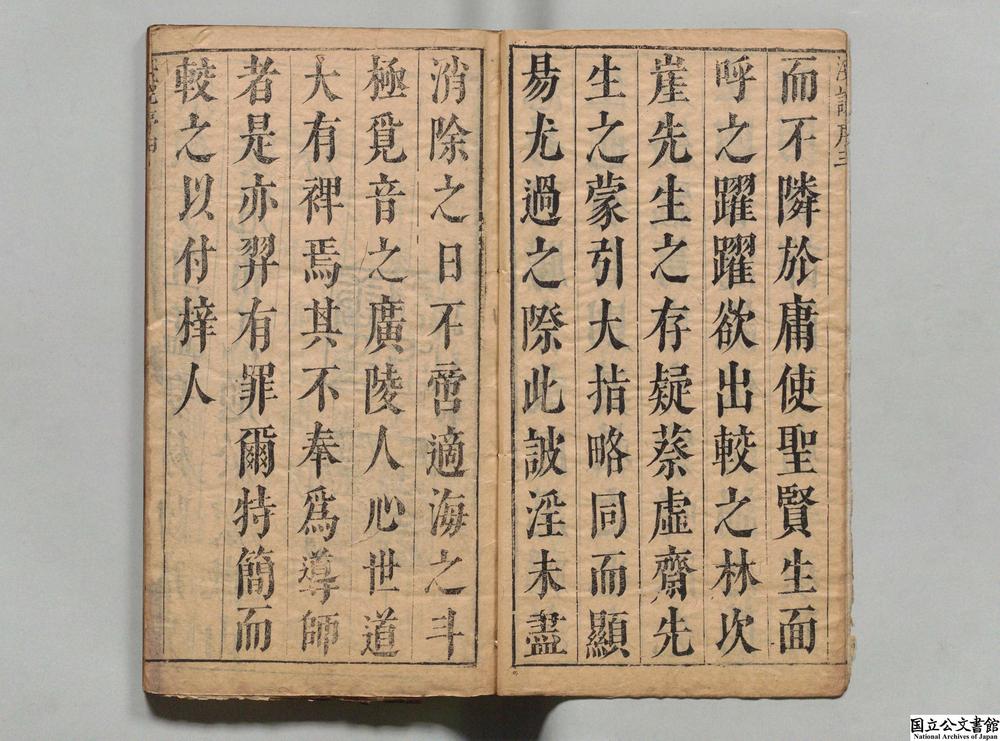 而不隣於庸使聖賢生面
呼之躍躍欲出較之林次
崖先生之存疑蔡虛齋先
生之蒙引大指略同而顯
易尤過之際此詖淫未盡
消除之日不啻適海之斗
極覓音之廣陵人心世道
大有裡焉其不奉爲導師
者是亦羿有罪爾特簡而
較之以付梓人
国立公文書館
National Archives of Japan